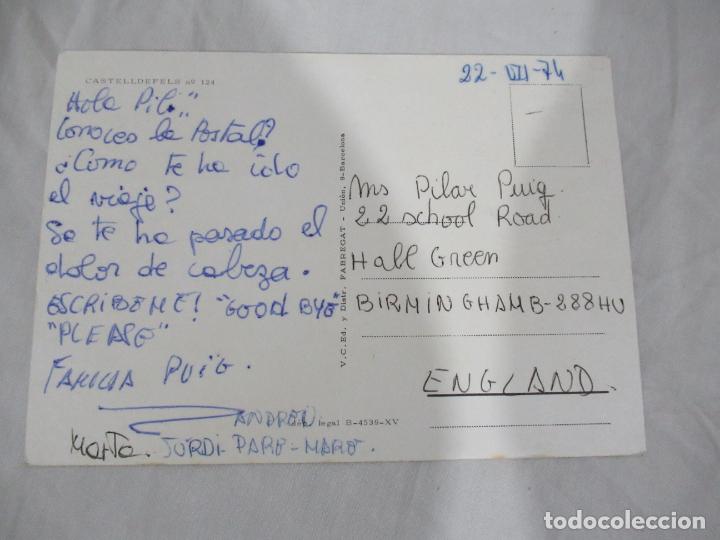 CASTELLDEFELS nº 124
22-VII-74
Hola Pili"
Conoces la Postal?
¿Como te ha ido
el viaje?
Se te ha pasado el
dolor de cabeza.
ESCRIBEME! "GOOD BYE"
"PLEASE"
FAMILIA PUIG.
ANDREU
Marta. JORDI PARE-MARE.
legal B-4539-XV
V.C. Ed. y Distr. FABREGAT - Unión, 9-Barcelona
Ms Pilar Puig.
22 school Road.
Hall Green
BIRMINGHAM B-288HU
ENGLAND.
todocoleccion